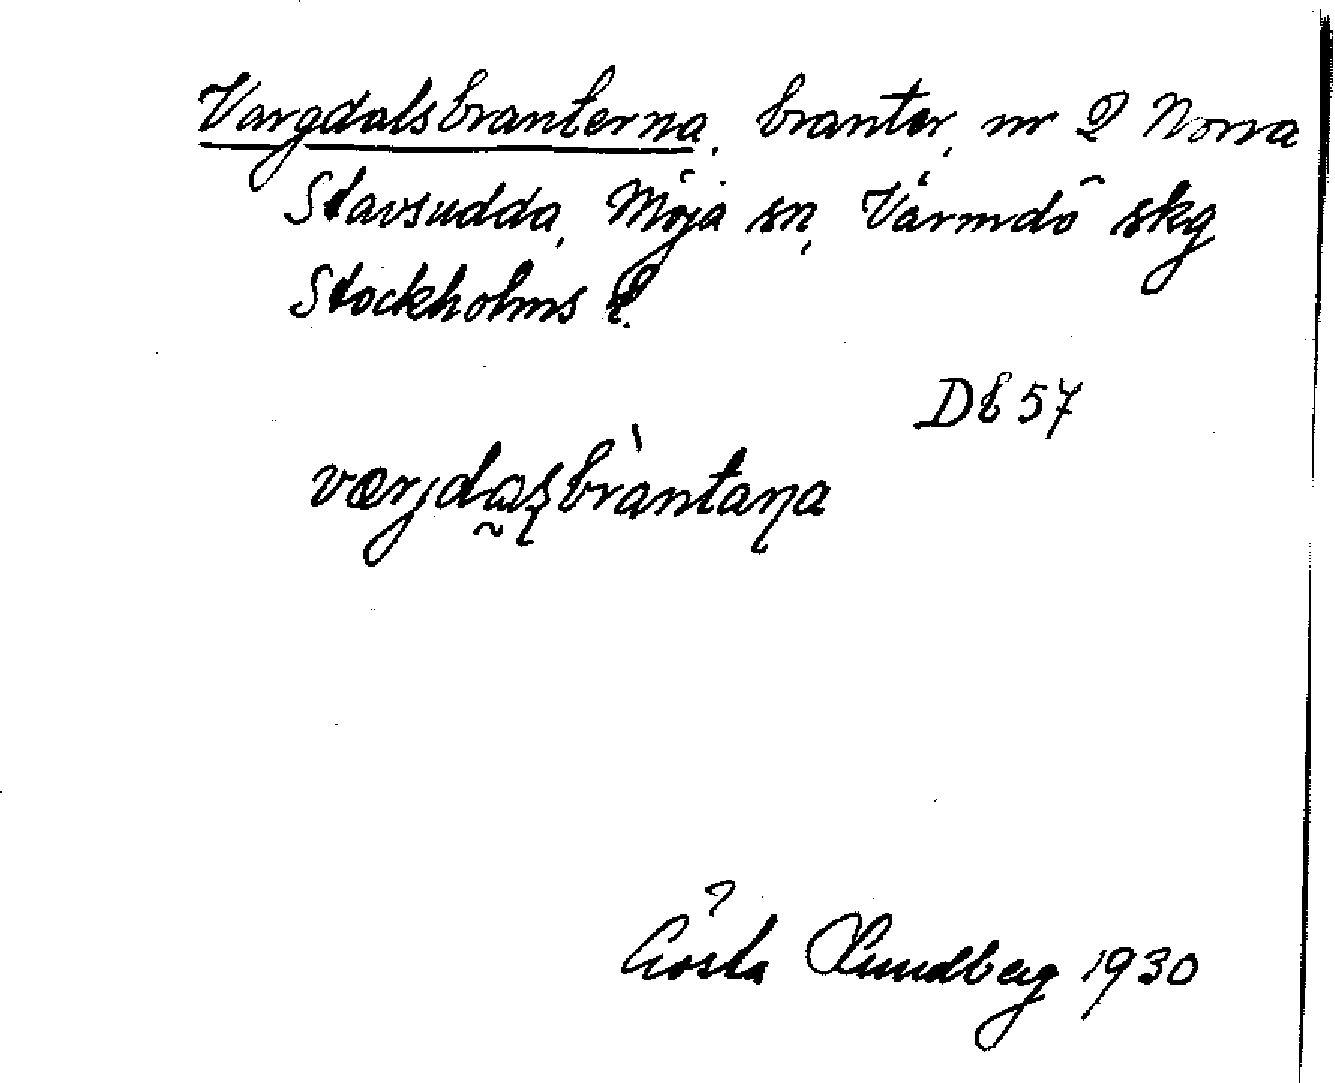 Vargdalsbranterna, branter, nr 2 Norra
Stavsudda, Möja sn, Värmdö skg
Stockholms l.
DE 57
Gösta Lundberg 1930